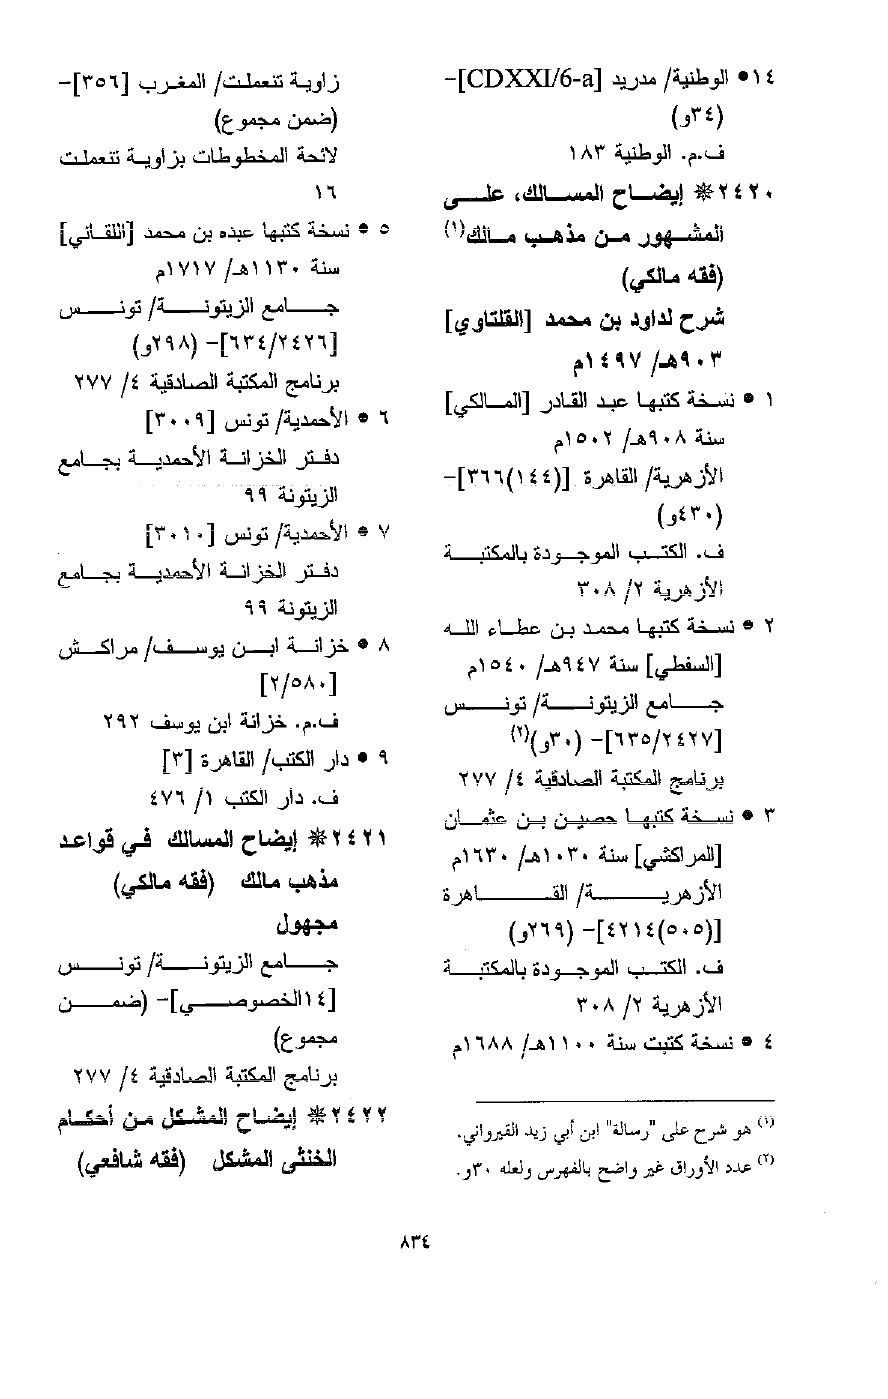 ١٤• الوطنية/ مدريد [CDXXI/6-a]-
(٣٤و)
ف.م. الوطنية ١٨٣
٢٤٢٠ ❋ إيضاح المسالك، على
المشهور من مذهب مالك(١)
(فقه مالكي)
شرح لداود بن محمد [القلتاوي]
٩٠٣هـ/ ١٤٩٧م
١ • نسخة كتبها عبد القادر [المالكي]
سنة ٩٠٨هـ/ ١٥٠٢م
الأزهرية/ القاهرة [(١٤٤)٣٦٦]-
(٤٣٠و)
ف. الكتب الموجودة بالمكتبة
الأزهرية ٢/ ٣٠٨
٢ • نسخة كتبها محمد بن عطاء الله
[السفطي] سنة ٩٤٧هـ/ ١٥٤٠م
جامع الزيتونة/ تونس
[٦٣٥/٢٤٢٧]- (٣٠و)(٢)
برنامج المكتبة الصادقية ٤/ ٢٧٧
٣ • نسخة كتبها حصين بن عثمان
[المراكشي] سنة ١٠٣٠هـ/ ١٦٣٠م
الأزهرية/ القاهرة
[(٥٠٥)٤٢١٤]- (٢٦٩و)
ف. الكتب الموجودة بالمكتبة
الأزهرية ٢/ ٣٠٨
٤ • نسخة كتبت سنة ١١٠٠هـ/ ١٦٨٨م
(١) هو شرح على "رسالة" ابن أبي زيد القيرواني.
(٢) عدد الأوراق غير واضح بالفهرس ولعله ٣٠و.
زاوية تنعملت/ المغرب [٣٥٦]-
(ضمن مجموع)
لائحة المخطوطات بزاوية تنعملت
١٦
٥ • نسخة كتبها عبده بن محمد [اللقاني]
سنة ١١٣٠هـ/ ١٧١٧م
جامع الزيتونة/ تونس
[٦٣٤/٢٤٢٦]- (٢٩٨و)
برنامج المكتبة الصادقية ٤/ ٢٧٧
٦ • الأحمدية/ تونس [٣٠٠٩]
دفتر الخزانة الأحمدية بجامع
الزيتونة ٩٩
٧ • الأحمدية/ تونس [٣٠١٠]
دفتر الخزانة الأحمدية بجامع
الزيتونة ٩٩
٨ • خزانة ابن يوسف/ مراكش
[٢/٥٨٠]
ف.م. خزانة ابن يوسف ٢٩٢
٩ • دار الكتب/ القاهرة [٣]
ف. دار الكتب ١/ ٤٧٦
٢٤٢١ ❋ إيضاح المسالك في قواعد
مذهب مالك (فقه مالكي)
مجهول
جامع الزيتونة/ تونس
[١٤الخصوصي]- (ضمن
مجموع)
برنامج المكتبة الصادقية ٤/ ٢٧٧
٢٤٢٢ ❋ إيضاح المشكل من أحكام
الخنثى المشكل (فقه شافعي)
٨٣٤